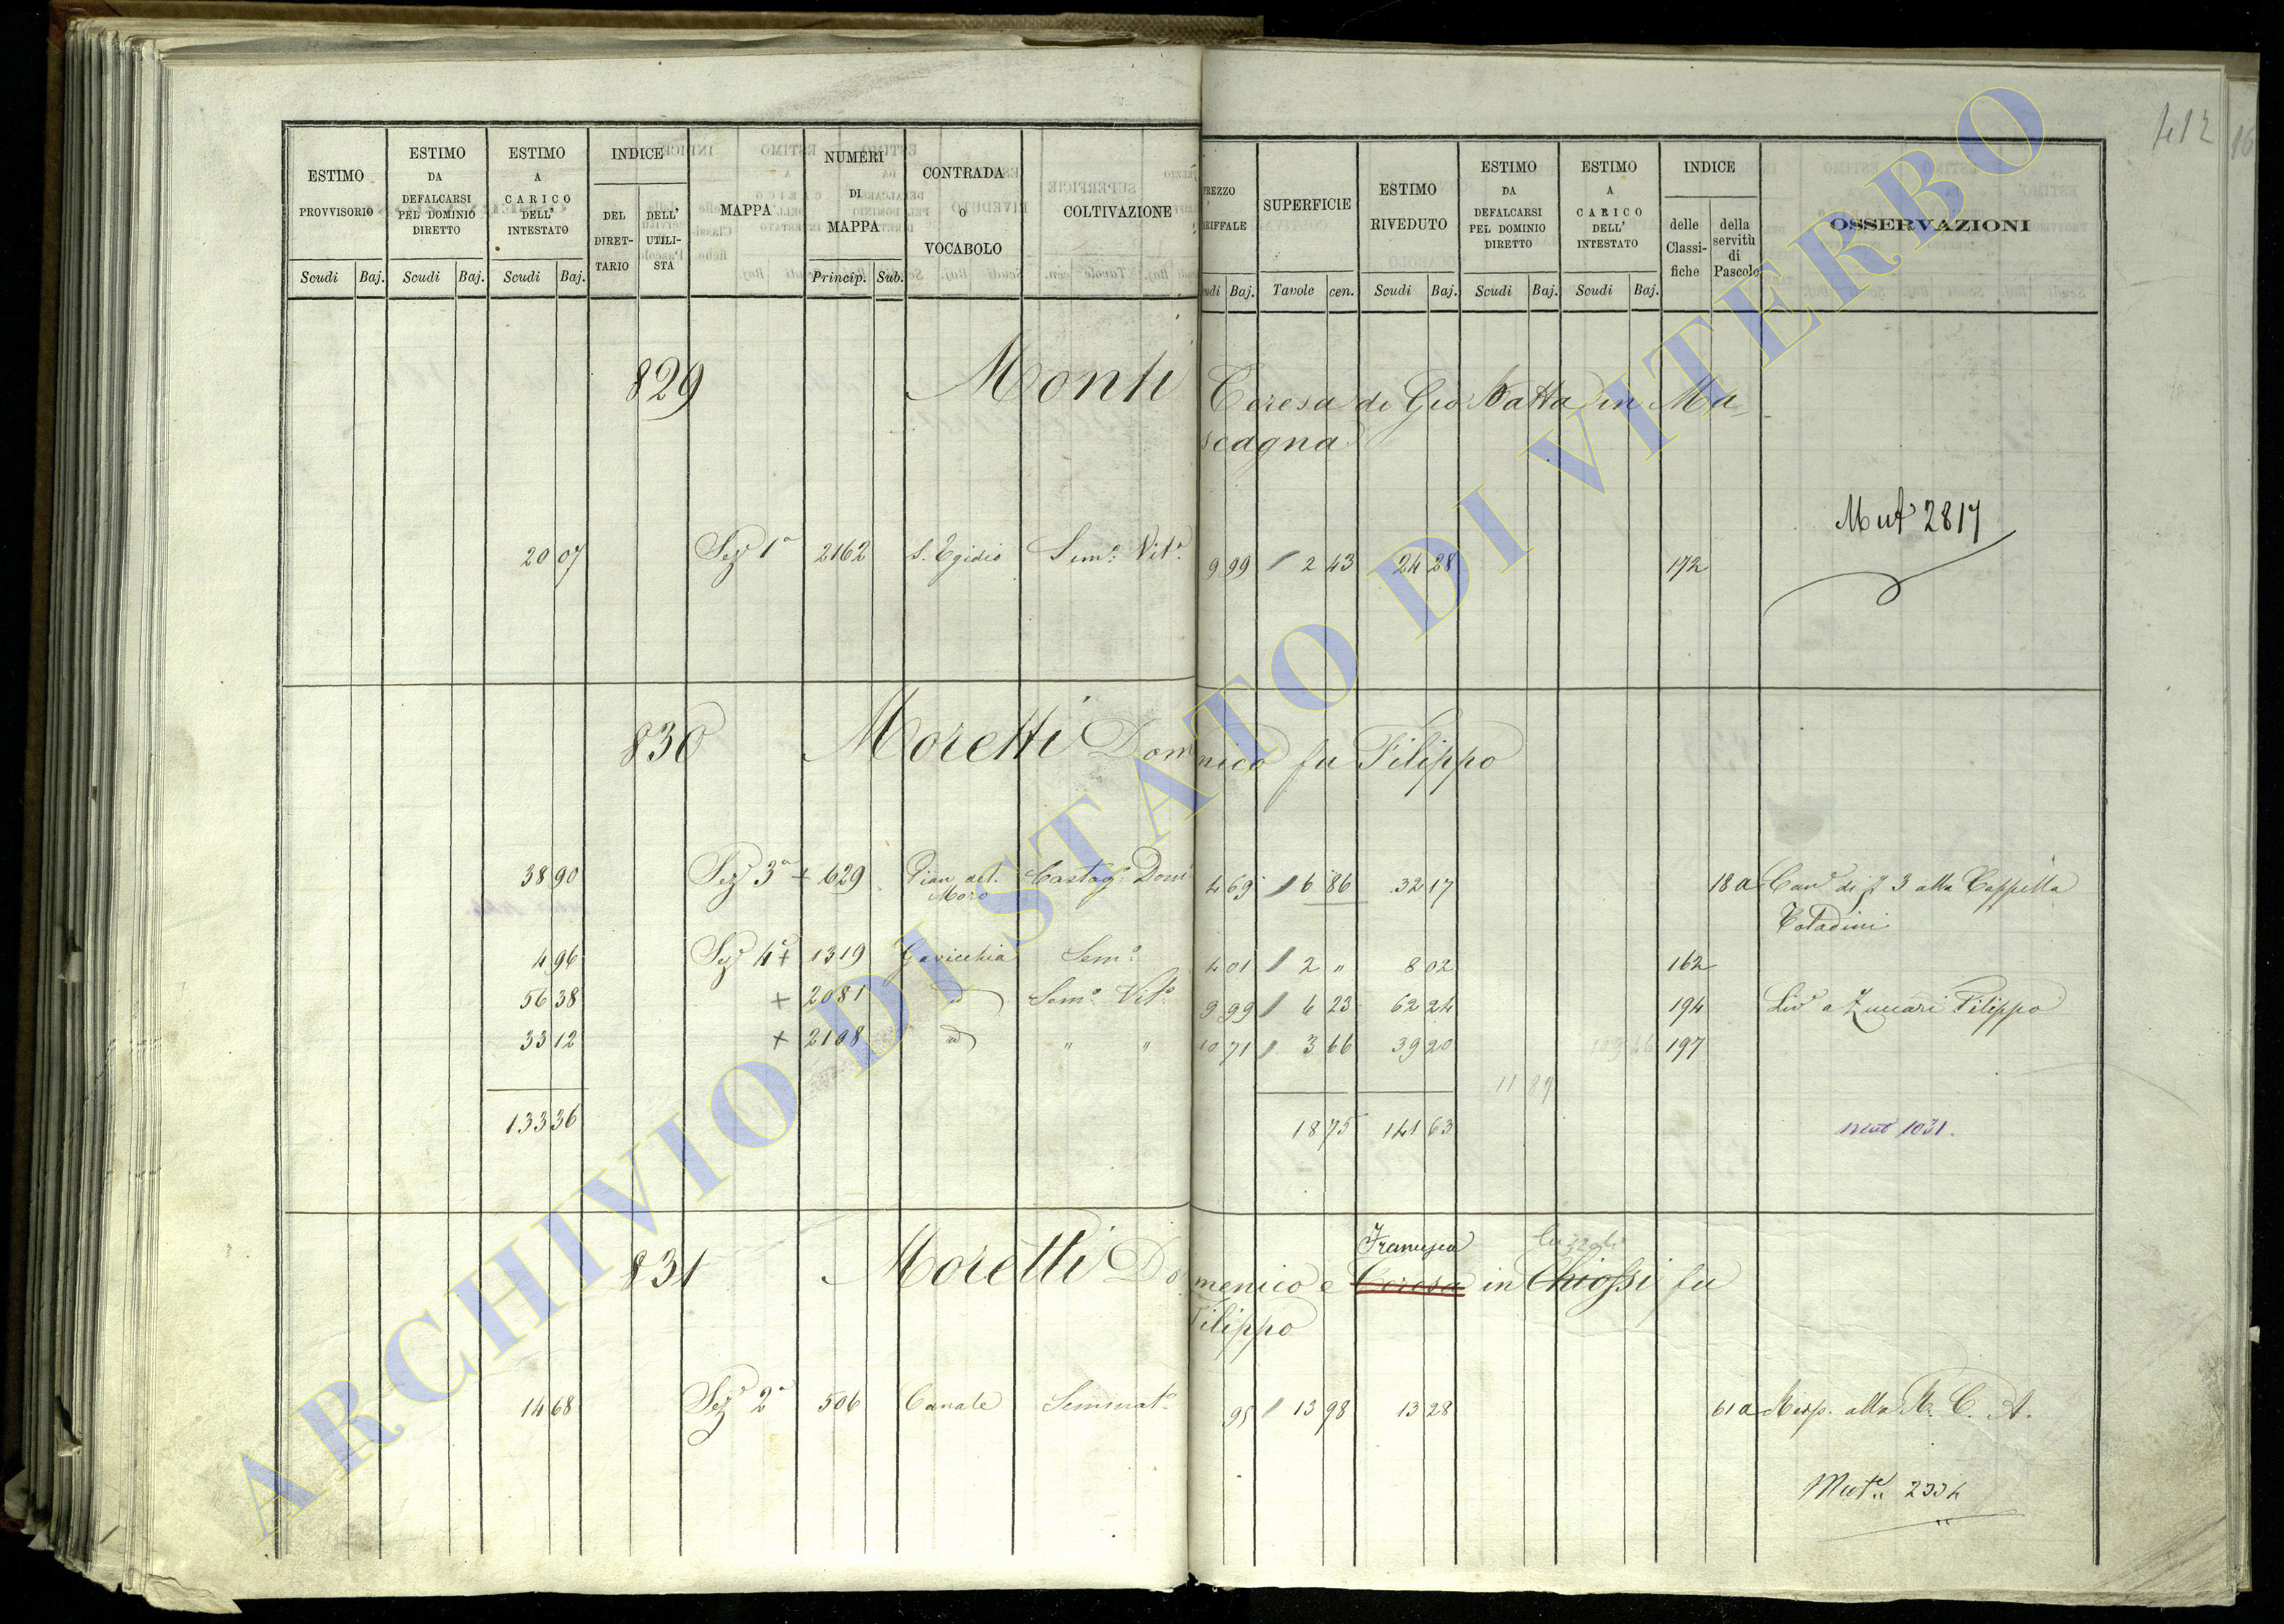 412
16
ESTIMO PROVVISORIO Scudi Baj.
ESTIMO DA DEFALCARSI PEL DOMINIO DIRETTO Scudi Baj.
ESTIMO A CARICO DELL' INTESTATO Scudi Baj.
INDICE DEL DIRET-TARIO DELL' UTILI-STA
MAPPA
NUMERI DI MAPPA Princip. Sub.
CONTRADA O VOCABOLO
COLTIVAZIONE
REZZO RIFFALE udi Baj.
SUPERFICIE Tavole cen.
ESTIMO RIVEDUTO Scudi Baj.
ESTIMO DA DEFALCARSI PEL DOMINIO DIRETTO Scudi Baj.
ESTIMO A CARICO DELL' INTESTATO Scudi Baj.
INDICE delle Classi-fiche della servitù di Pascolo
OSSERVAZIONI
829 Monti Teresa di Gio Batta in Ma-
scagna
Mut 2817
20 07 Sez 1a 2162 S. Egidio Sem.o Vit.o 9 99 2 43 24 28 172
830 Moretti Domenico fu Filippo
38 90 Sez 3a + 629 Pian del Moro Castag. Dom. 4 69 6 86 32 17 18 a Can di 3 alla Cappella
Totadini
4 96 Sez 4a + 1319 Gavicchia Sem.o 4 01 2 " 8 02 162
56 38 + 2081 id Sem.o Vit.o 9 99 6 23 62 24 194 Liv a Zuccari Filippo
33 12 + 2108 id " " 10 71 3 66 39 20 109 46 197
11 89
133 36 18 75 141 63 mut 1031.
Francesca
831 Moretti Domenico e Teresa in Chiossi fu
Filippo
14 68 Sez 2a 506 Canale Seminat.o 95 13 98 13 28 61 a Risp. alla R. C. A.
Mut.e 2334
ARCHIVIO DI STATO DI VITERBO